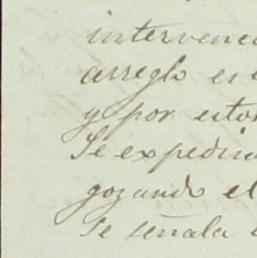 intervenci
arreglo es
y por esta
Se expedira
gozando el
Se señala